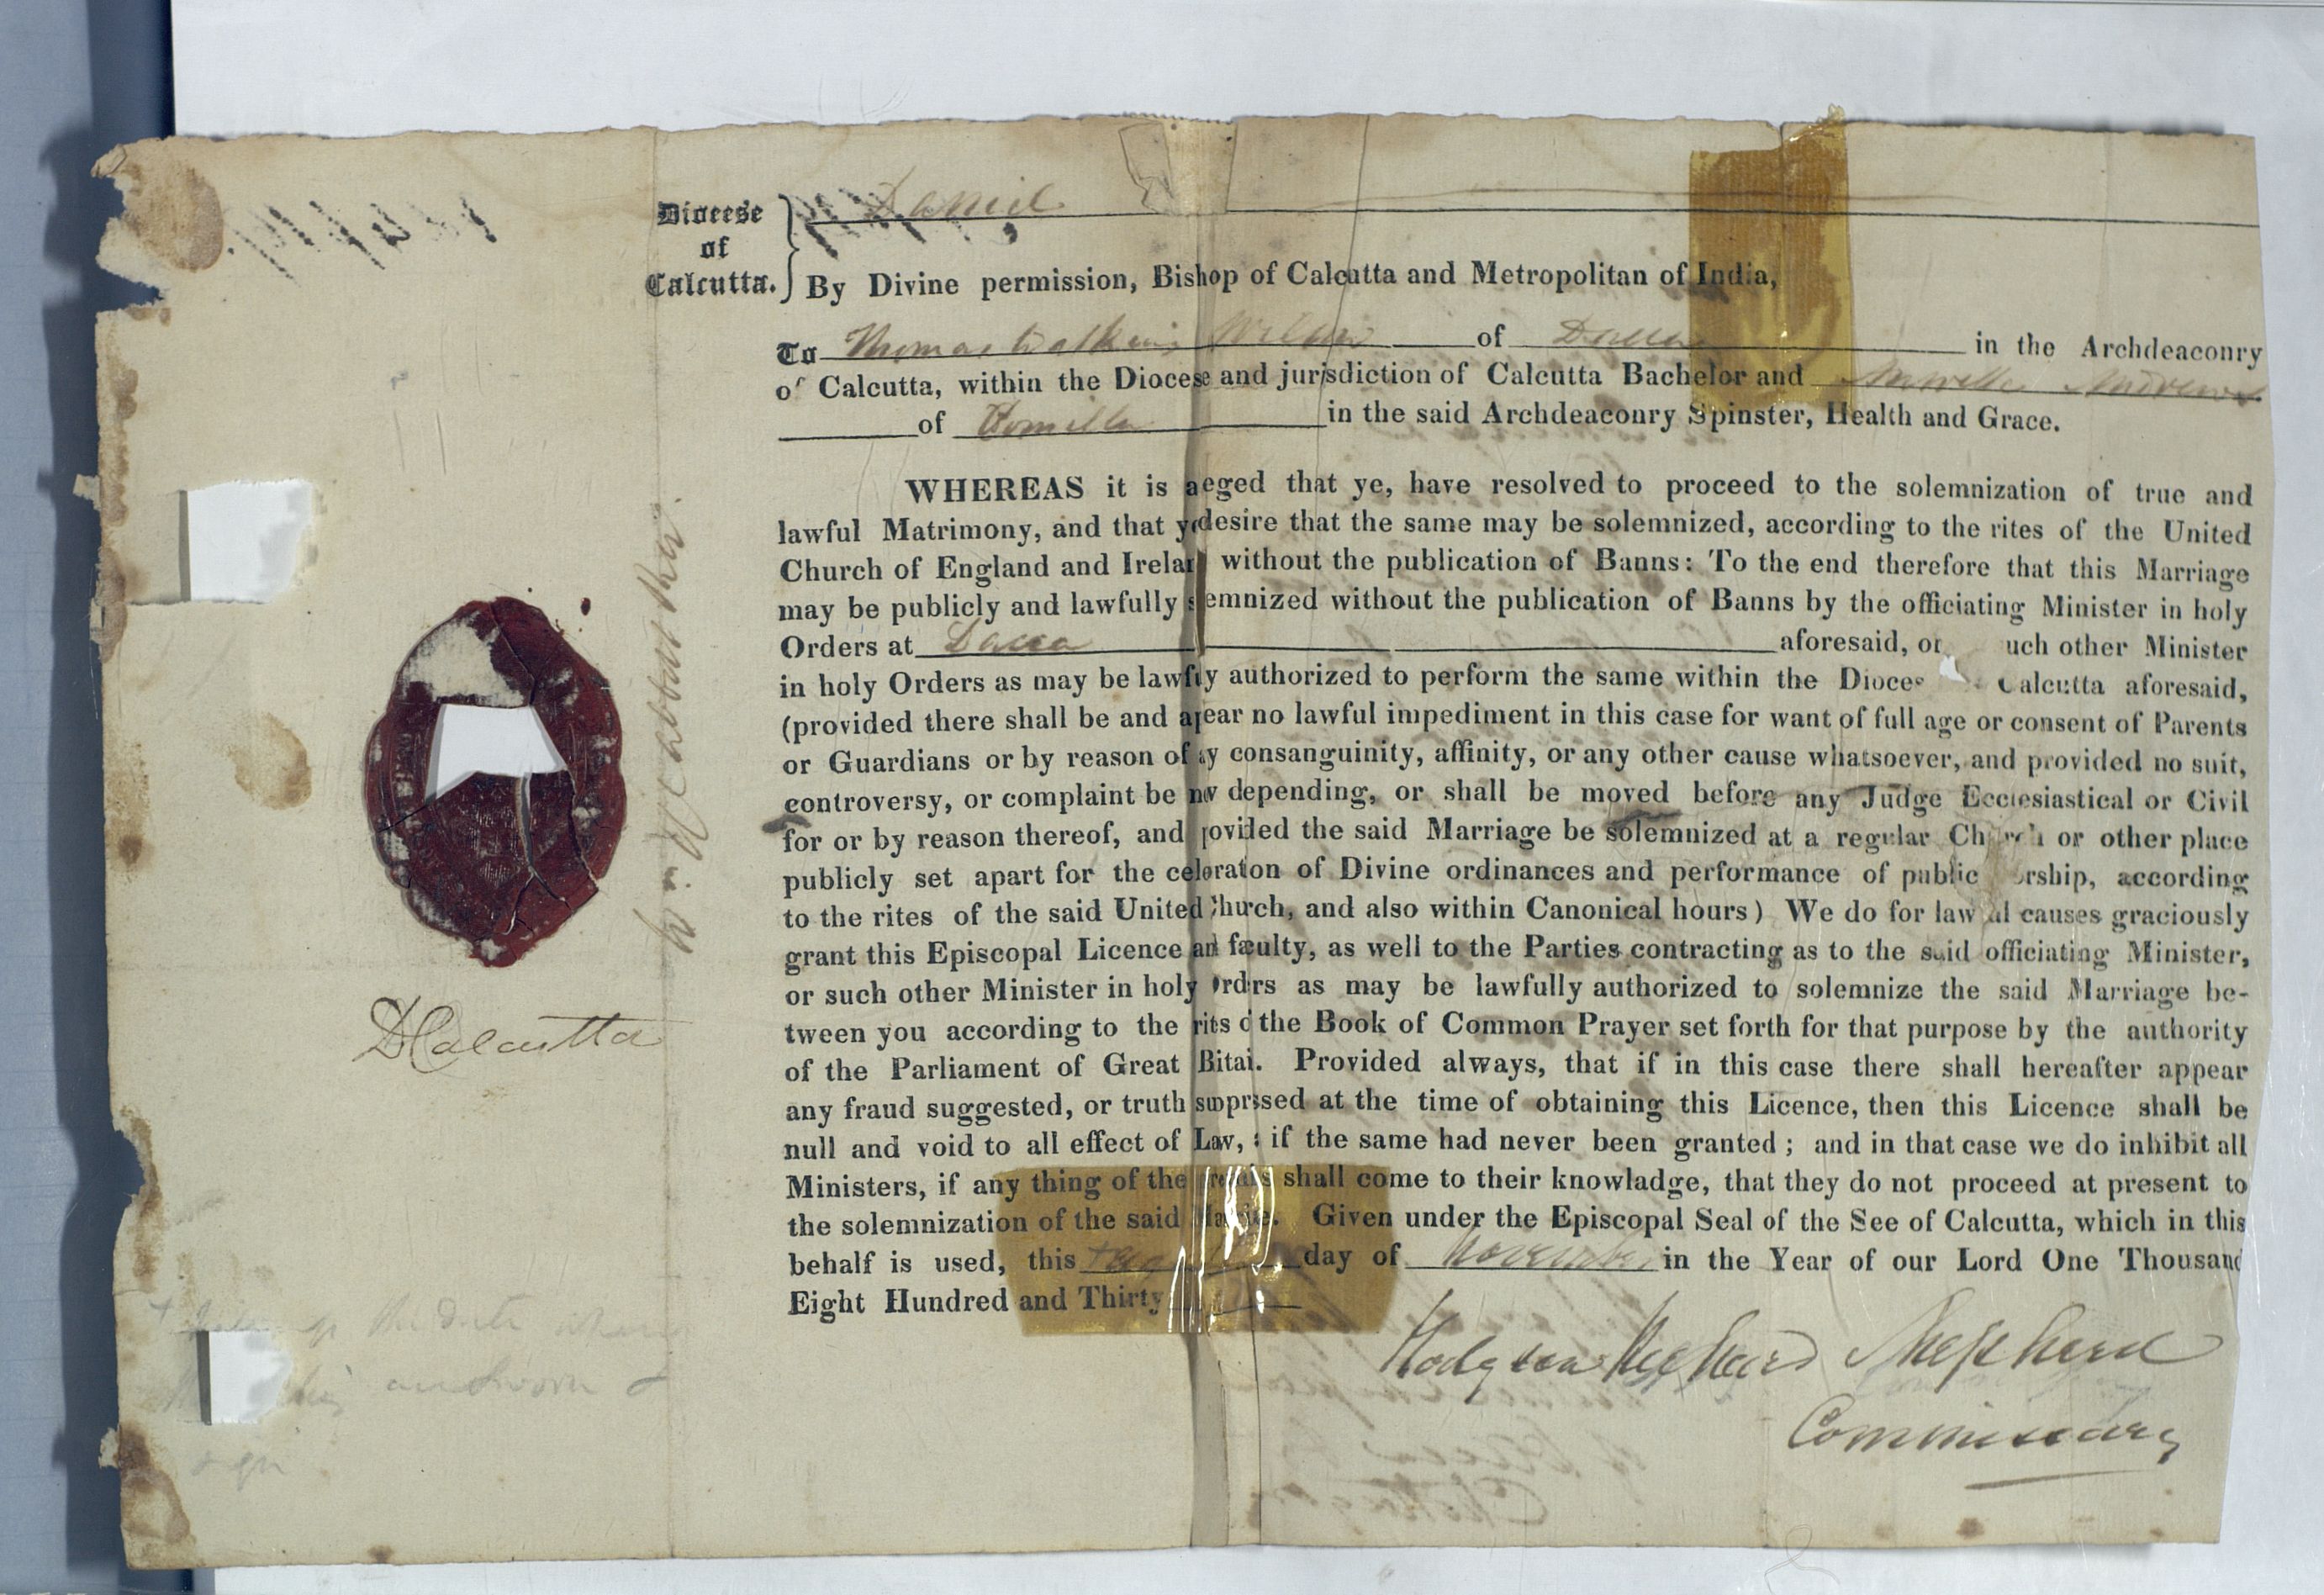 Diocese
of
Calcutta.
Daniel
By Divine permission, Bishop of Calcutta and Metropolitan of India,
To Thomas Watkins of Dacca in the Archdeaconry
of Calcutta, within the Diocese and jurisdiction of Calcutta Bachelor and Andrews
of Comilla in the said Archdeaconry Spinster, Health and Grace.
WHEREAS it is aeged that ye, have resolved to proceed to the solemnization of true and
lawful Matrimony, and that ye desire that the same may be solemnized, according to the rites of the United
Church of England and Irelan without the publication of Banns: To the end therefore that this Marriage
may be publicly and lawfully semnized without the publication of Banns by the officiating Minister in holy
Orders at Dacca aforesaid, or uch other Minister
in holy Orders as may be lawfly authorized to perform the same within the Dioces Calcutta aforesaid,
(provided there shall be and apear no lawful impediment in this case for want of full age or consent of Parents
or Guardians or by reason of ay consanguinity, affinity, or any other cause whatsoever, and provided no suit,
controversy, or complaint be now depending, or shall be moved before any Judge Ecclesiastical or Civil
for or by reason thereof, and provided the said Marriage be solemnized at a regular Church or other place
publicly set apart for the celebraton of Divine ordinances and performance of public orship, according
to the rites of the said United Church, and also within Canonical hours) We do for lawful causes graciously
grant this Episcopal Licence and faculty, as well to the Parties contracting as to the said officiating Minister,
or such other Minister in holy Orders as may be lawfully authorized to solemnize the said Marriage be-
tween you according to the rits o the Book of Common Prayer set forth for that purpose by the authority
of the Parliament of Great Bitai. Provided always, that if in this case there shall hereafter appear
any fraud suggested, or truth supprssed at the time of obtaining this Licence, then this Licence shall be
null and void to all effect of Law, if the same had never been granted; and in that case we do inhibit all
Ministers, if any thing of the shall come to their knowladge, that they do not proceed at present to
the solemnization of the said Given under the Episcopal Seal of the See of Calcutta, which in this
behalf is used, this day of November in the Year of our Lord One Thousand
Eight Hundred and Thirty
D Calcutta
Shepherd
Commissary